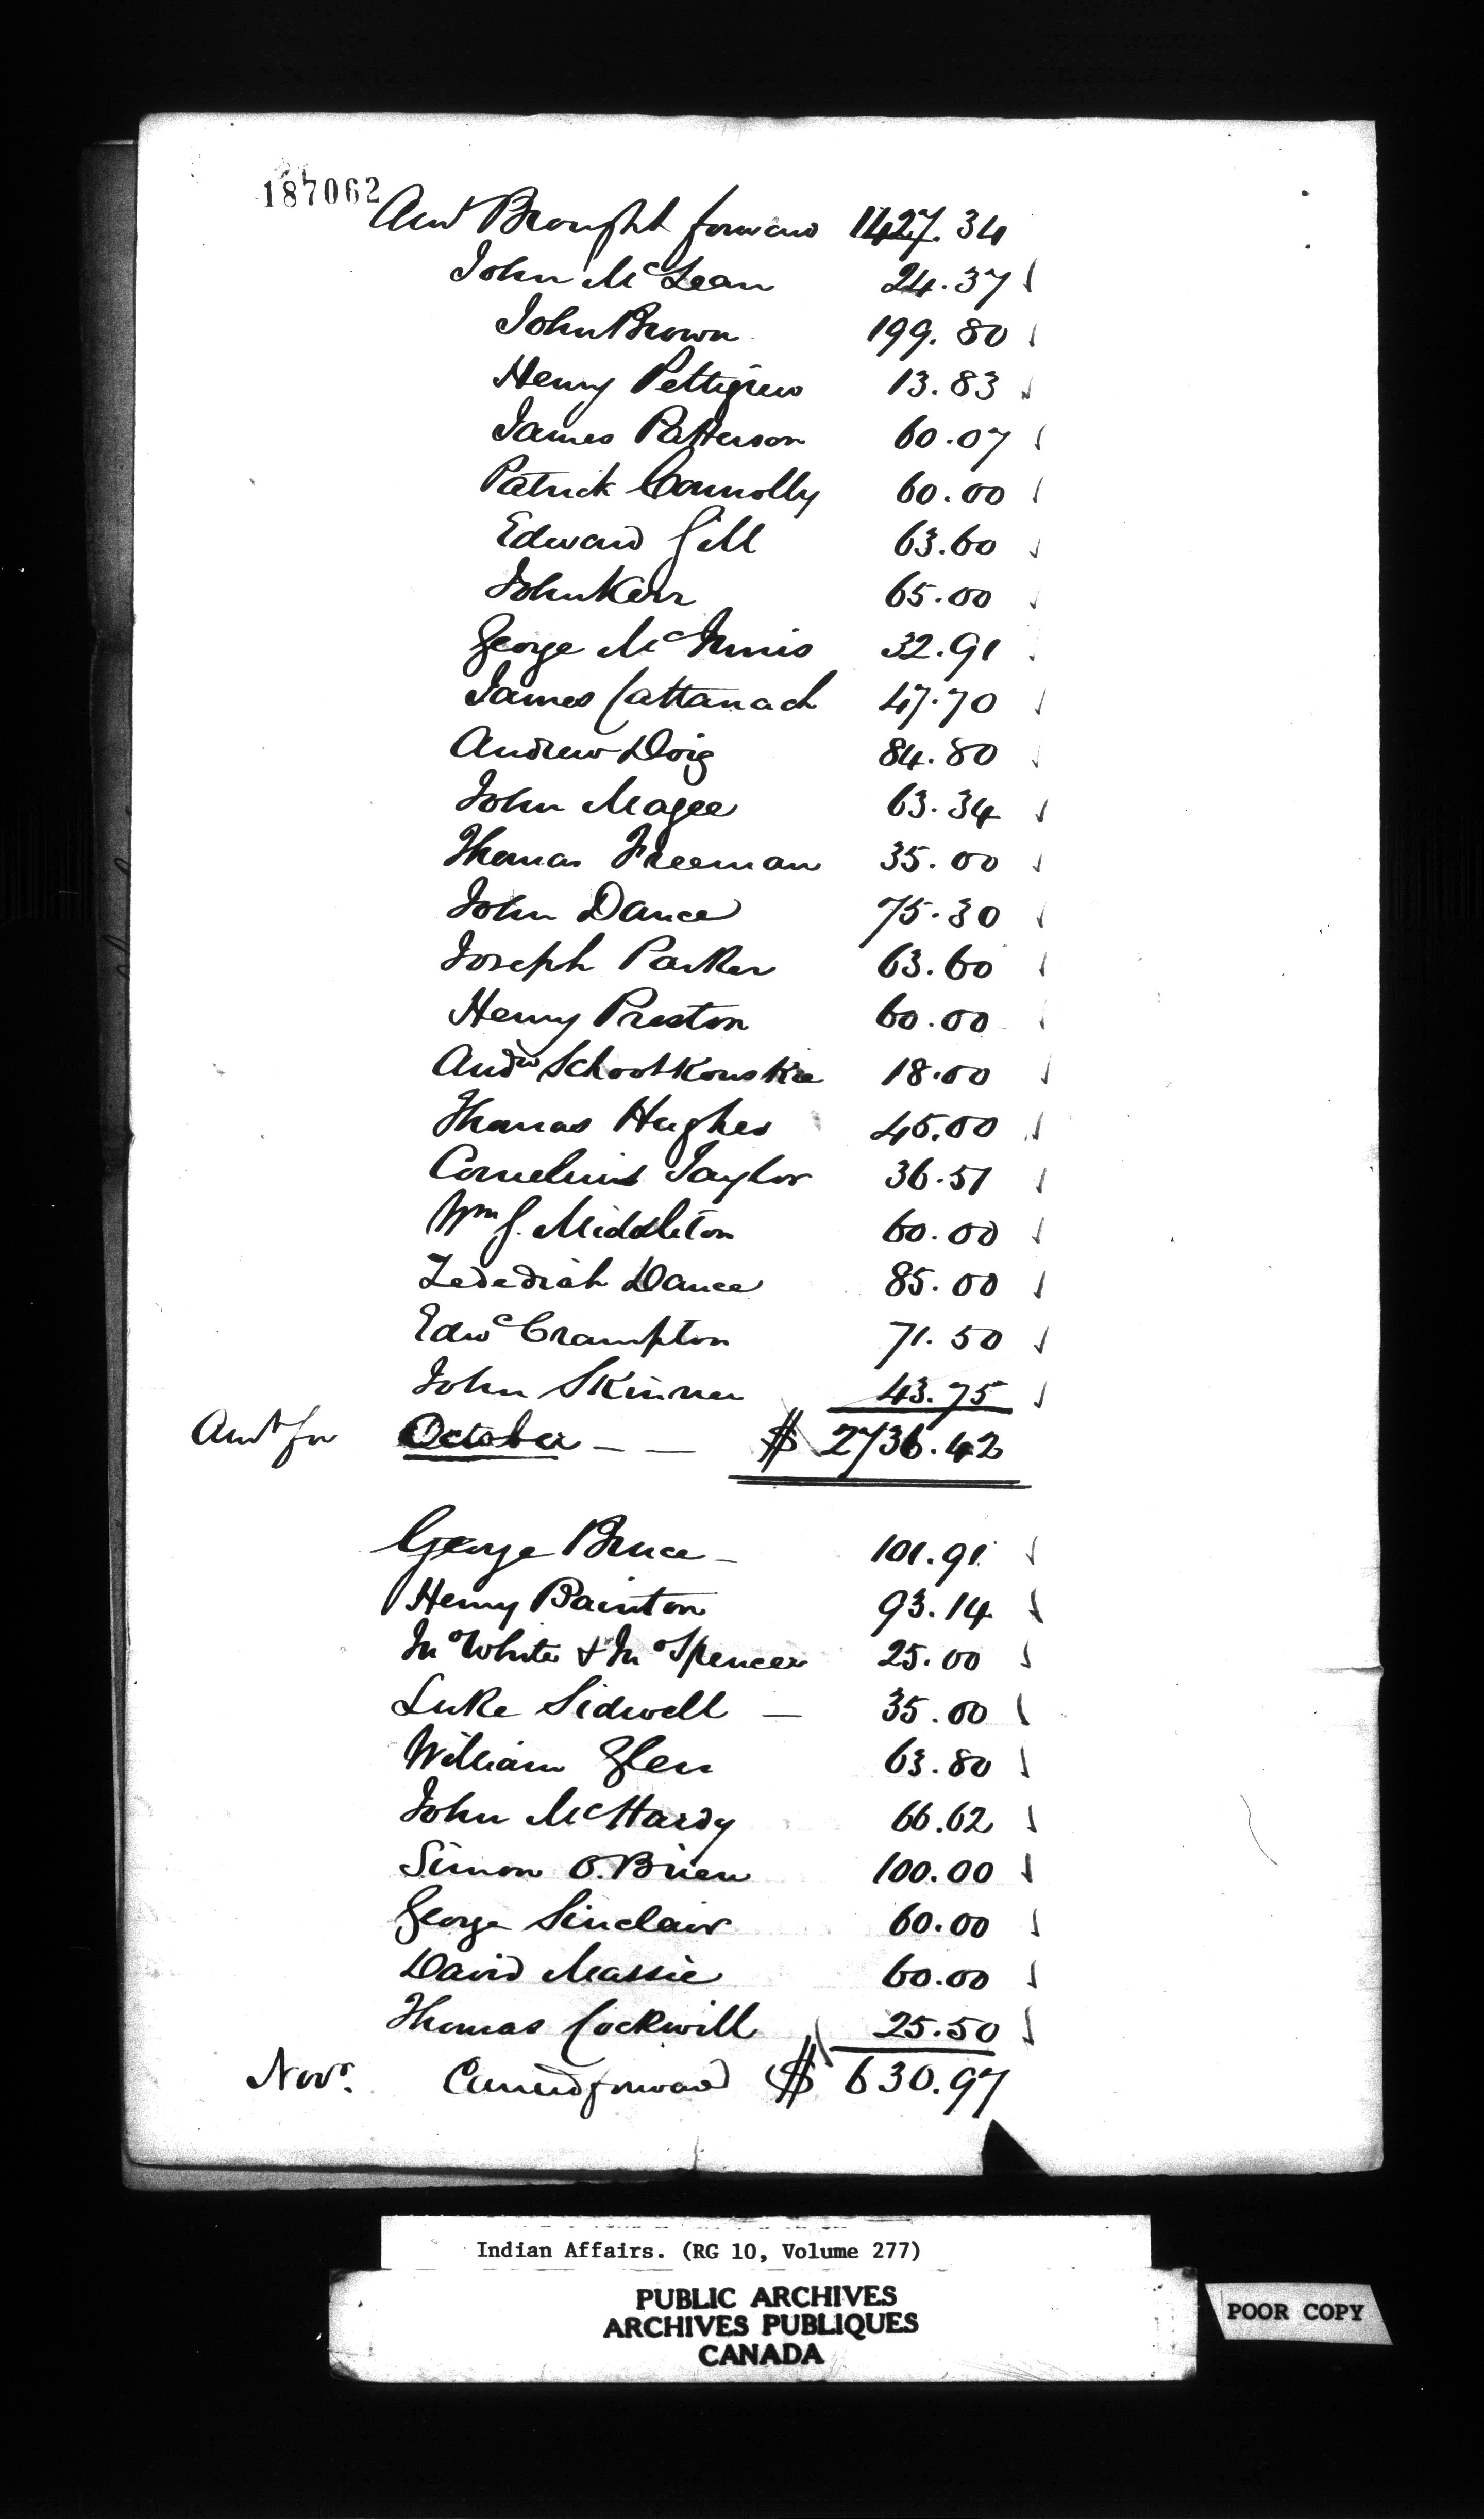 187062
Amt Brought forward 1427.34
John McLean 24.37
John Brown 199.80
Henry Pettigrew 13.83
James Patterson 60.07
Patrick Connolly 60.00
Edward Gill 63.60
John Kerr 65.00
George McInnis 32.91
James Cattanach 47.70
Andrew Doig 84.80
John Magee 63.34
Thomas Freeman 35.00
John Dance 75.30
Joseph Parker 63.60
Henry Preston 60.00
Andw Schootkouskie 18.00
Thomas Hughes 45.00
Cornelius Taylor 36.51
Wm J. Middleton 60.00
Zedediah Dance 85.00
Edwd Crampton 71.50
John Skinner 43.75
Amt for October - - $ 2736.42
George Bruce - 101.91
Henry Bainton 93.14
Jno White & Jno Spencer 25.00
Luke Sidwell - 35.00
William Glen 63.80
John McHardy 66.62
Simon O.Brien 100.00
George Sinclair 60.00
David Massie 60.00
Thomas Cockwill 25.50
Novr. Carried forward $ 630.97
Indian Affairs. (RG 10, Volume 277)
PUBLIC ARCHIVES
ARCHIVES PUBLIQUES
CANADA
POOR COPY